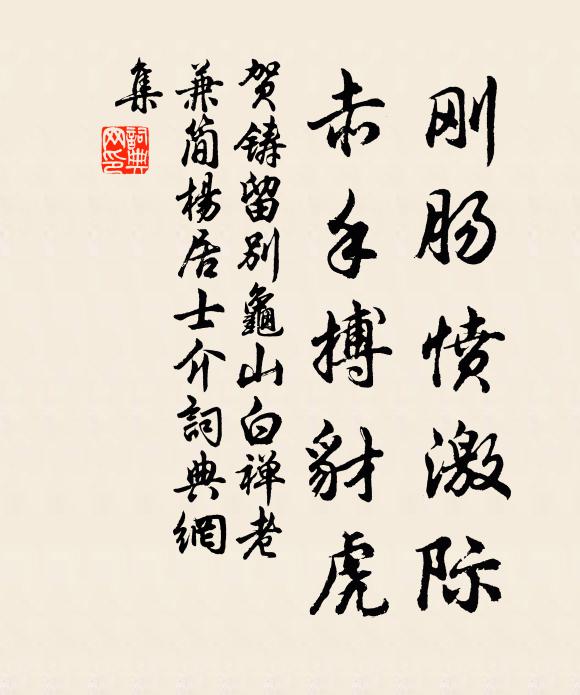 刚肠愤激际
赤手搏豺虎
贺铸留别龜山白禅老
兼简楊居士介詞典網
集
詞典
网印